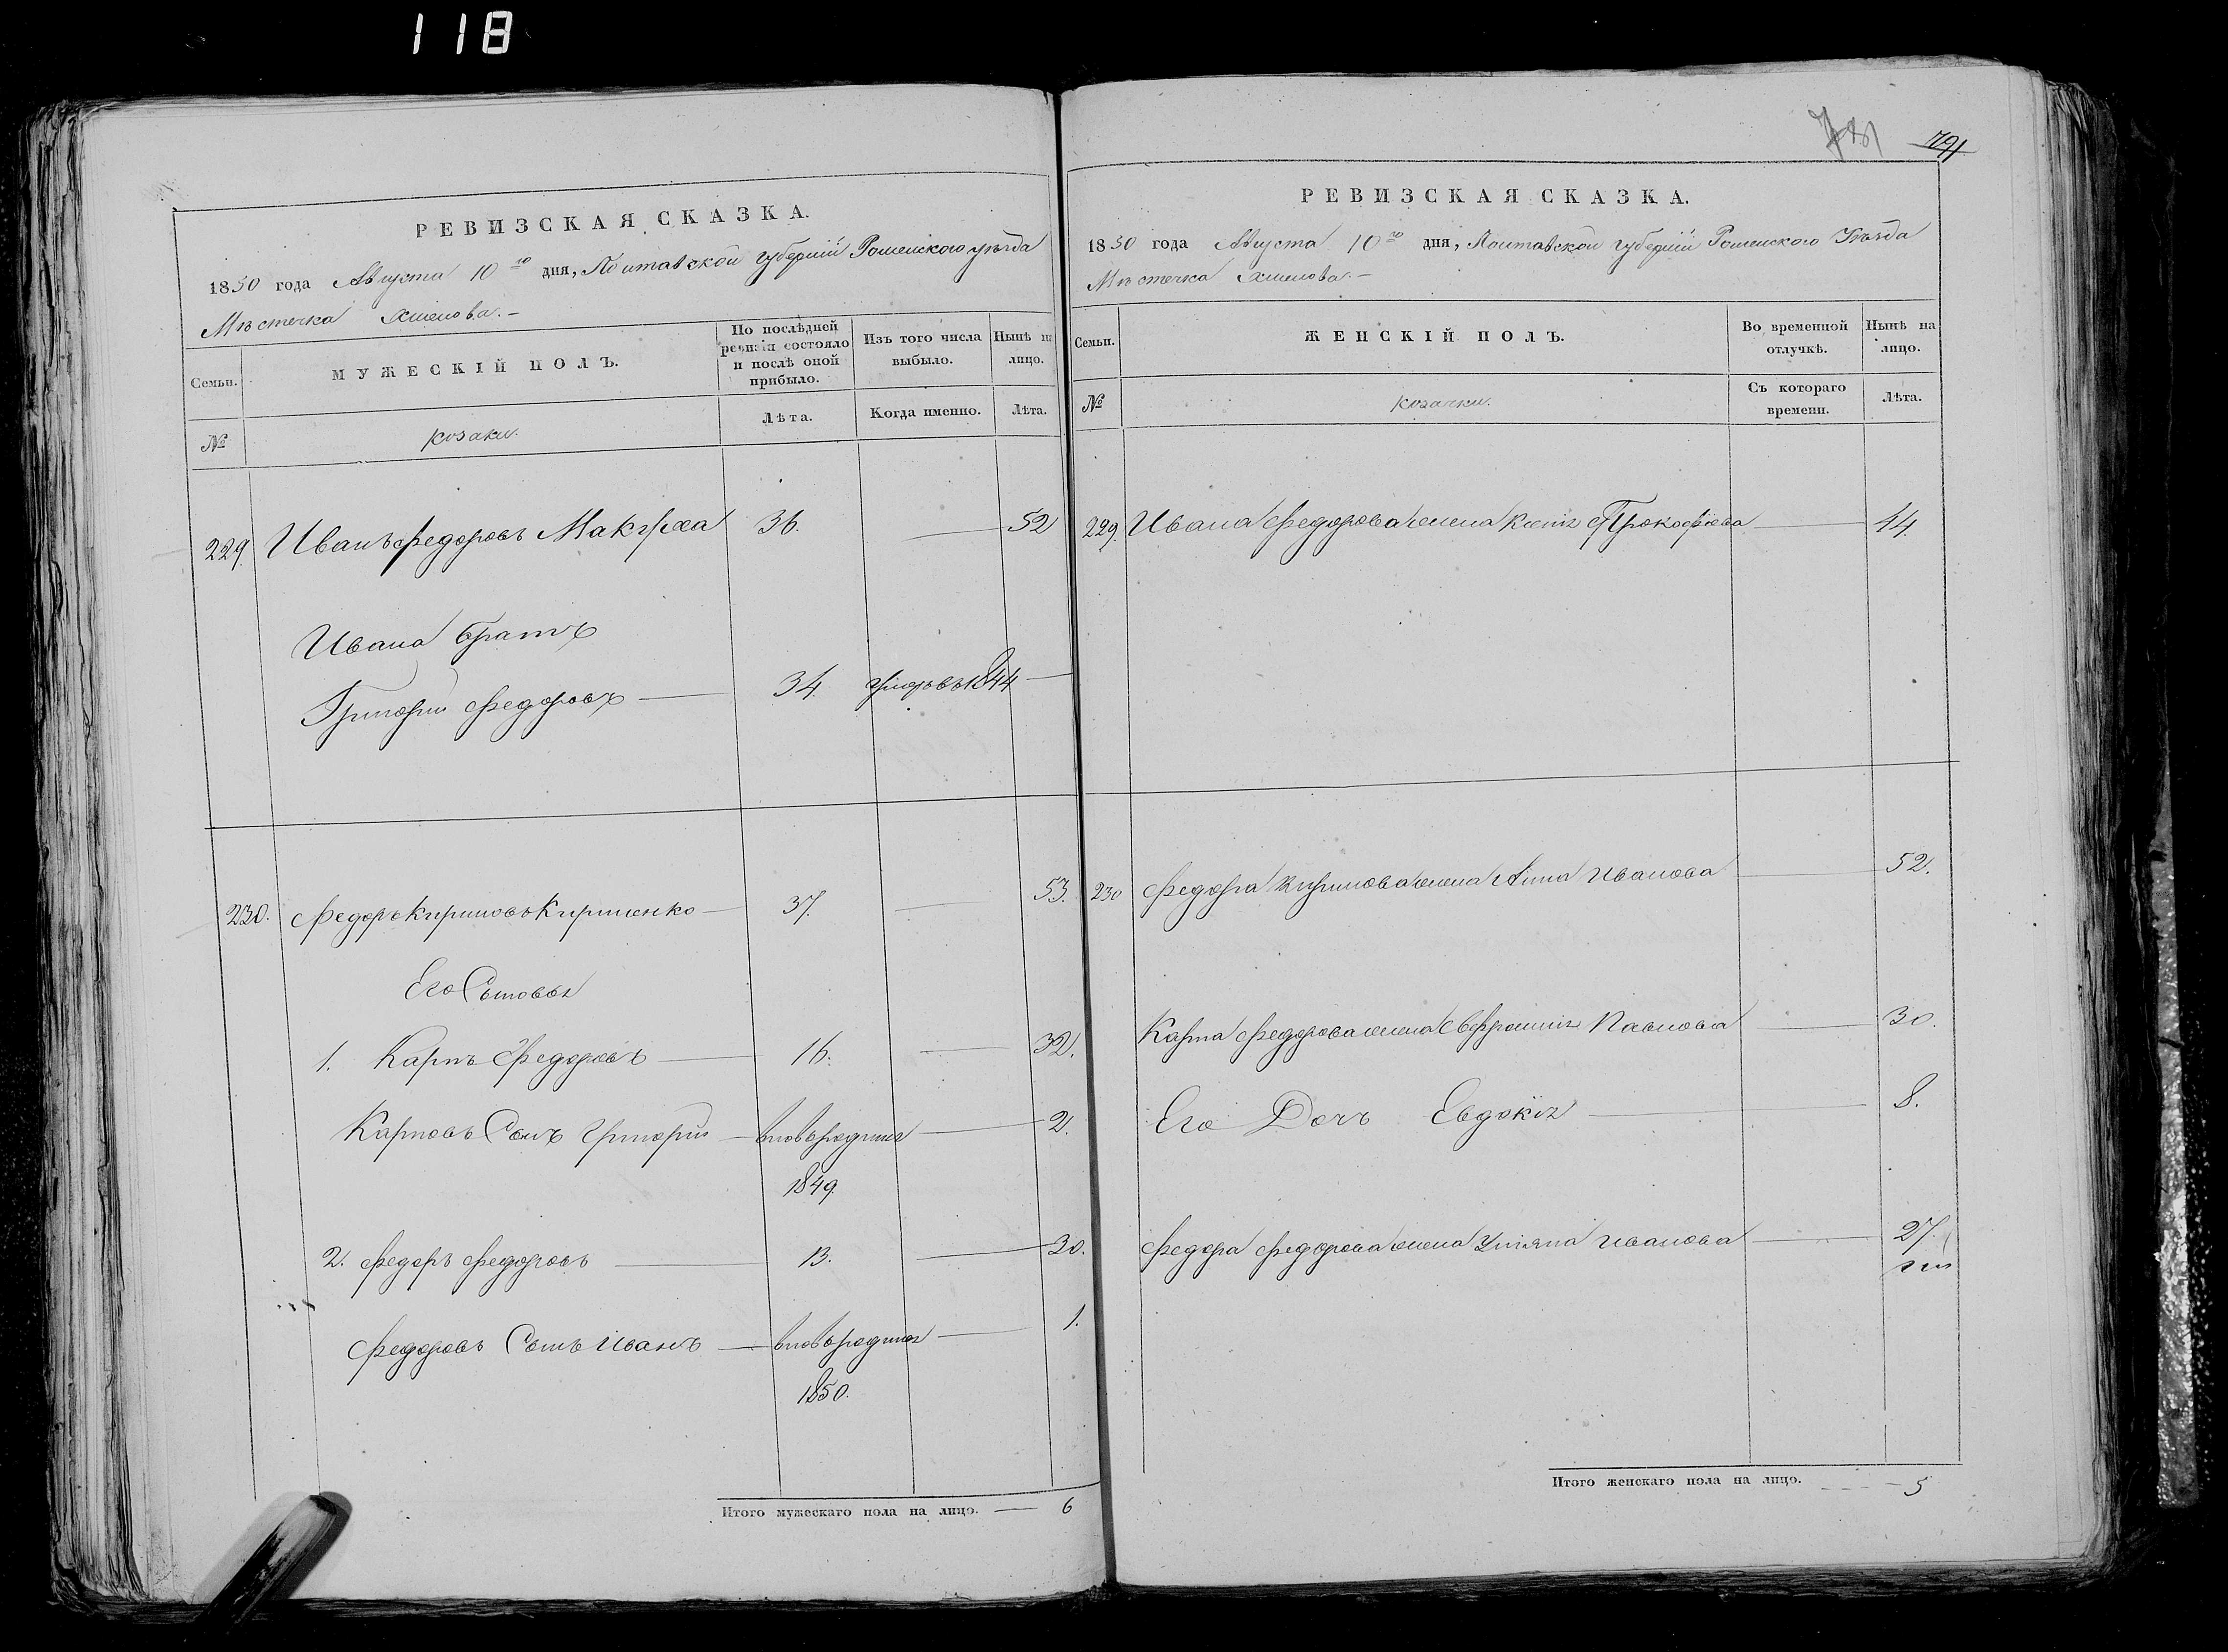 118
РЕВИЗСКАЯ СКАЗКА.
1850 года Августа 10го дня, Полтавской губерніи Роменскаго уѣзда
Мѣстечка
Семьи.
МУЖЕСКІЙ ПОЛЪ.
По послѣдней ревизіи состояло и послѣ оной прибыло.
Изъ того числа выбыло.
Нынѣ на лицо.
№
козаки.
Лѣта.
Когда именно.
Лѣта.
229. Иванъ Федоровъ Макуха 36. — 52
Ивана братъ
Григорій Федоровъ — 34. умеръ въ 1844 —
230. Федоръ Кириловъ Кириленко — 37. — 53.
Его Сыновья
1. Карпъ Федоровъ — 16. — 32.
Карповъ Сынъ Григорій — вновь родился — 2.
1849.
2. Федоръ Федоровъ — 13. — 30.
Федоровъ Сынъ Иванъ — вновь родился — 1.
1850.
Итого мужескаго пола на лицо. — 6
781 791
РЕВИЗСКАЯ СКАЗКА.
1850 года Августа 10го дня, Полтавской губерніи Роменскаго Уѣзда
Мѣстечка
Семьи.
ЖЕНСКІЙ ПОЛЪ.
Во временной отлучкѣ.
Нынѣ на лицо.
№
козачки.
Съ котораго времени.
Лѣта.
229. Ивана Федорова жена Прокофіева — 44.
230 Федора Кирилова жена Анна Иванова — 52.
Карпа Федорова жена Евфросинія Павлова — 30.
Его Дочь Евдокія — 8.
Федора Федорова жена Уліяна Иванова — 27.
Итого женскаго пола на лицо. — 5